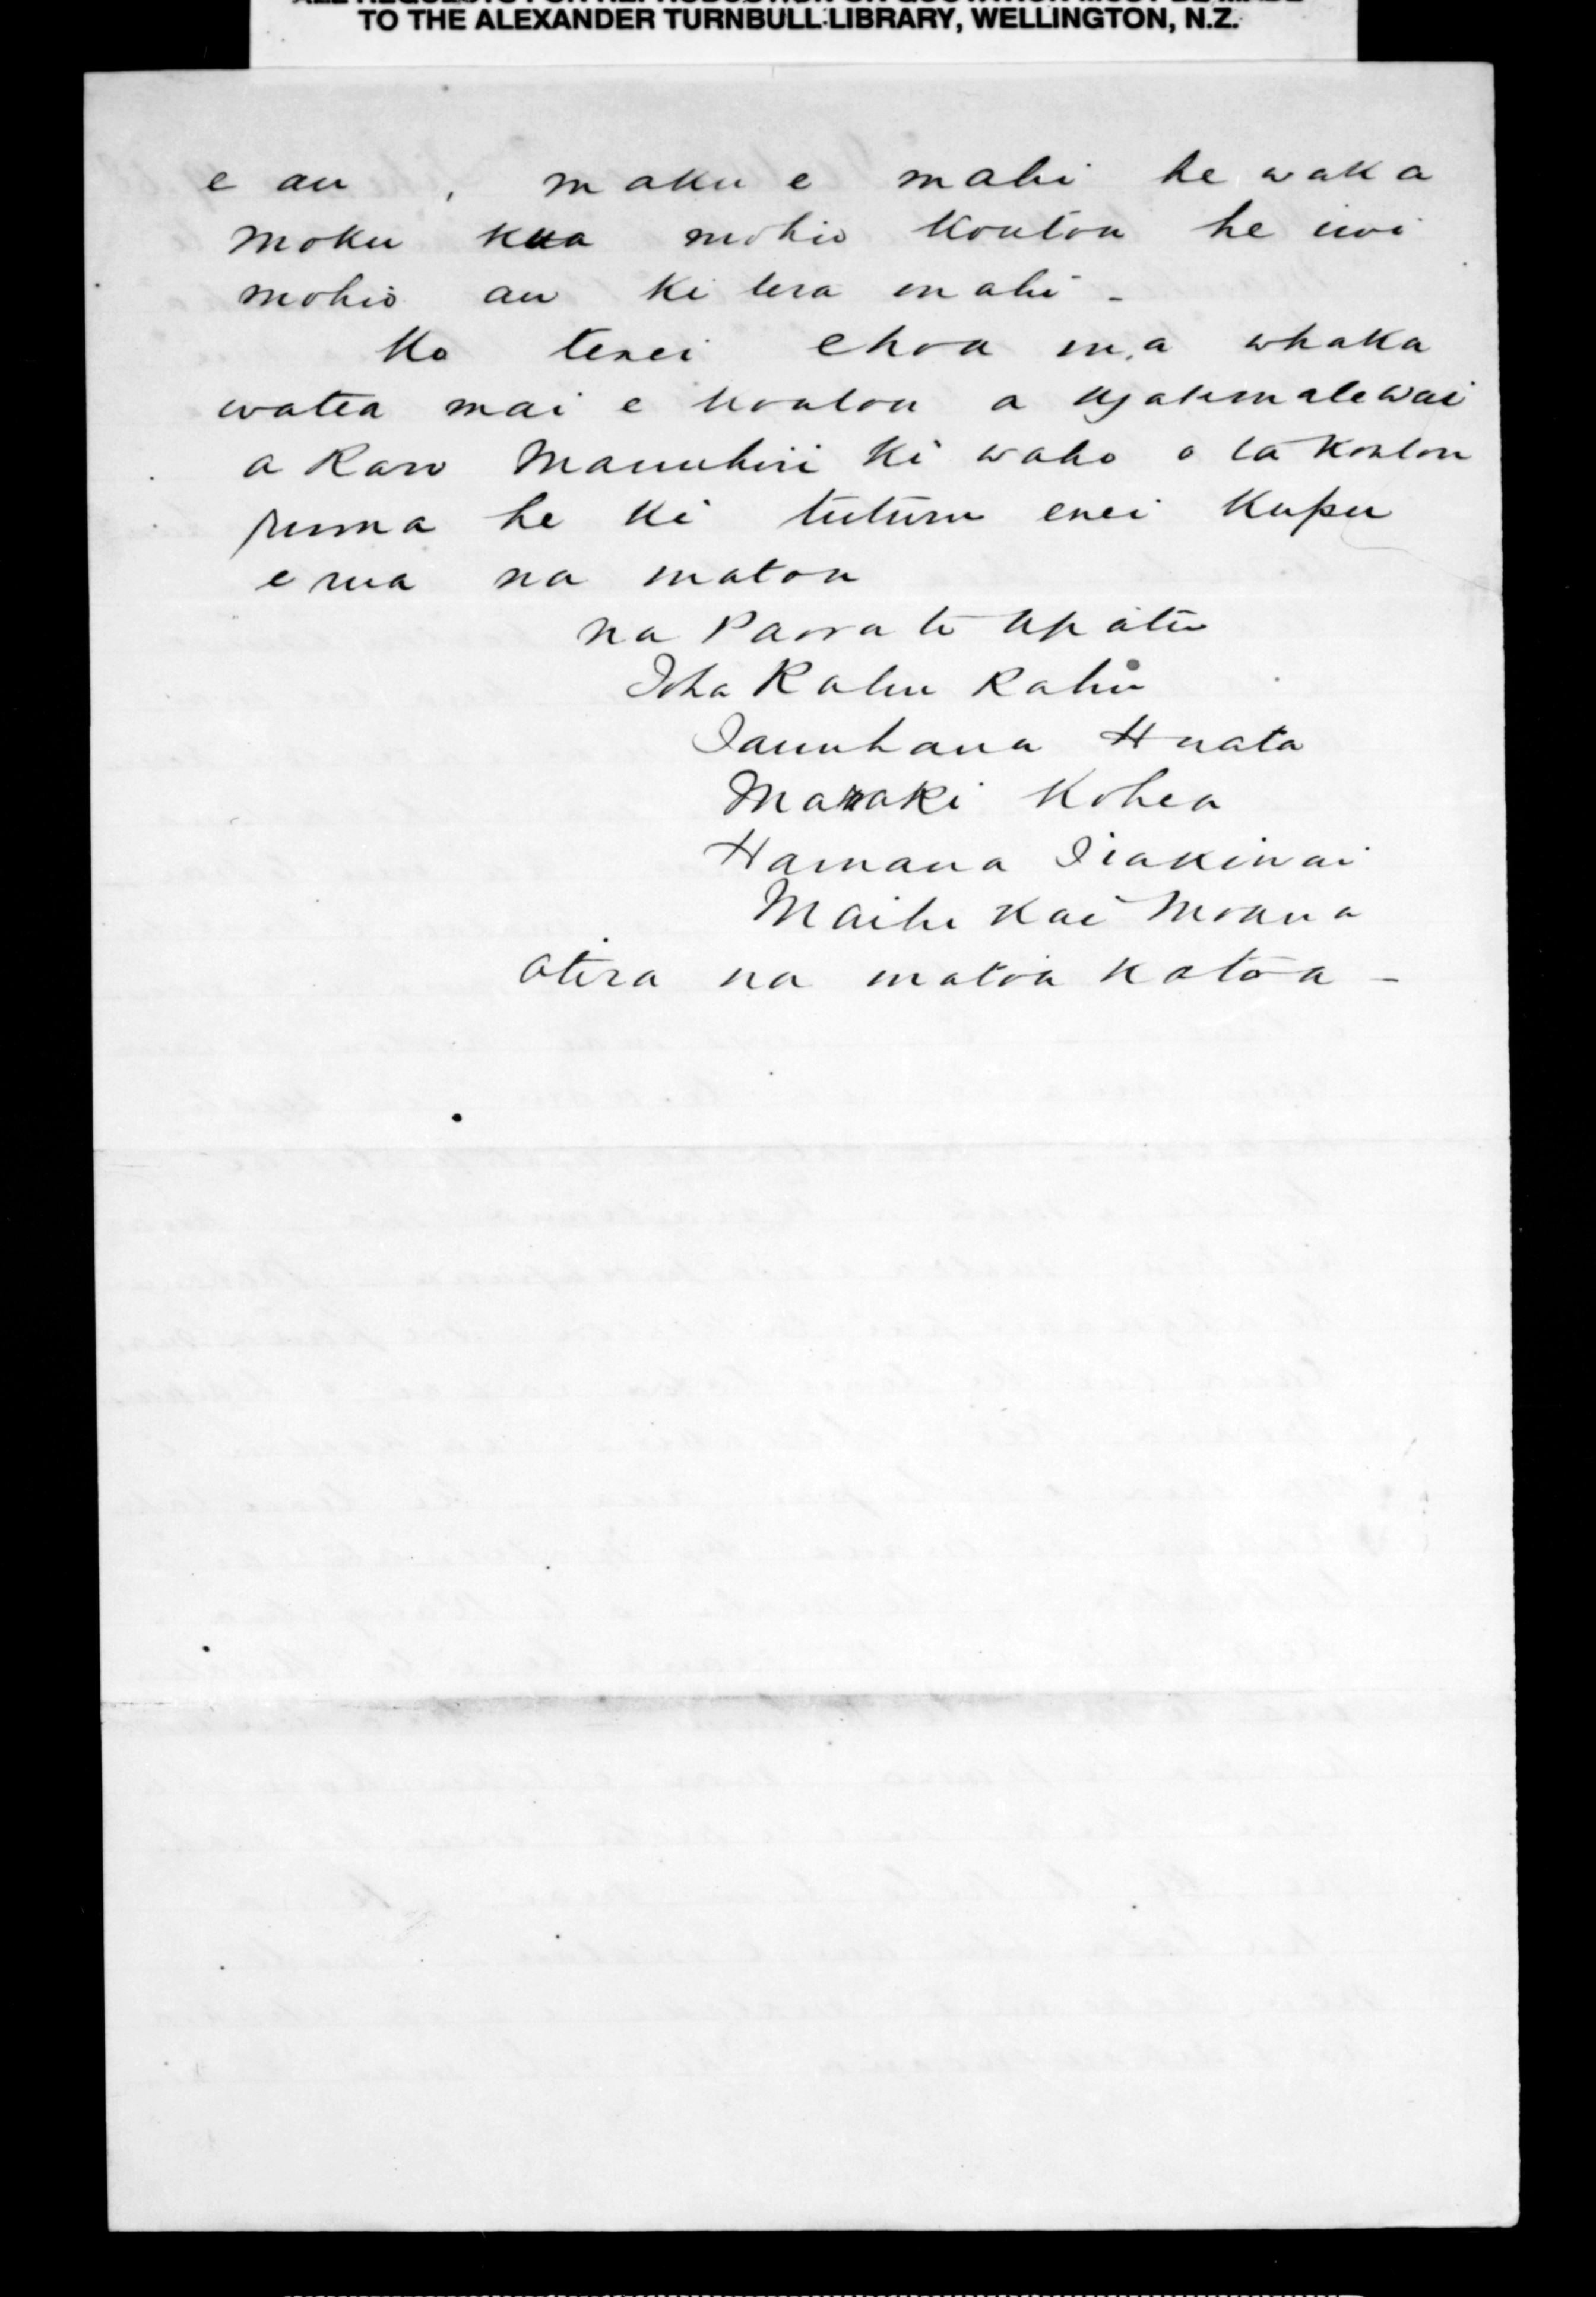 TO THE ALEXANDER TURNBULL LIBRARY, WELLINGTON, N.Z.
e au , maku e mahi he waka
moku kua mohio koutou he iwi
mohio au ki tera mahi -
Ko tenei ehoa ma whaka
watea mai e koutou a Ngakimatewai
a Raro Manuhiri ki waho o ta koutou
puma he ki tuturu enei kupu
e rua na matou
na Paora te Apatu
Ioha Kahu Kahu
Tamuhana Huata
Maraki Kohea
Hamana Tiakiwai
Maihi Kai Moana
Otira na matou katoa -